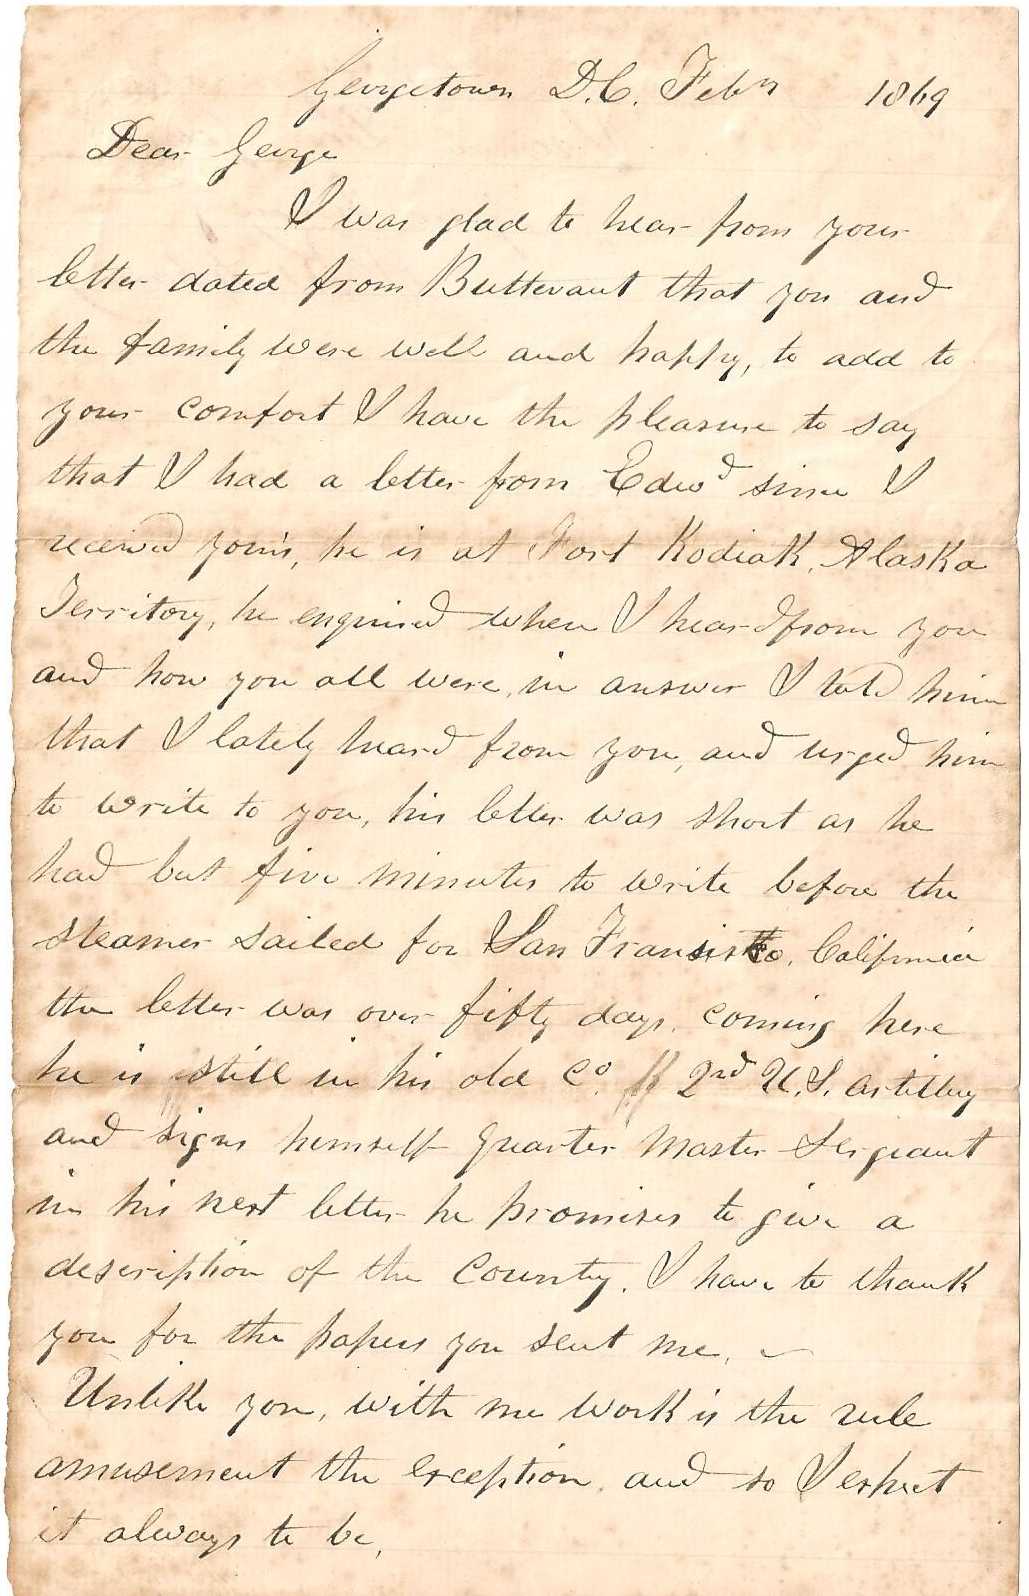 Georgetown D.C. Feby 1869
Dear George
I was glad to hear from your
letter dated from Buttevant that you and
the family were well and happy, to add to
your comfort I have the pleasure to say
that I had a letter from Edwd since I
received your's, he is at Fort Kodiak, Alaska
Territory, he enquired when I heard from you
and how you all were, in answer I told him
that I lately heard from you, and urged him
to write to you, his letter was short as he
had but five minutes to write before the
steamer sailed for San Fransisco, California
the letter was over fifty days, coming here
he is still in his old Co. 2nd U.S. artillery
and signs himself Quarter Master Sergeant
in his next letter he promises to give a
description of the County. I have to thank
you for the papers you sent me,
Unlike you, with me work is the rule
amusement the exception, and so I expect
it always to be,